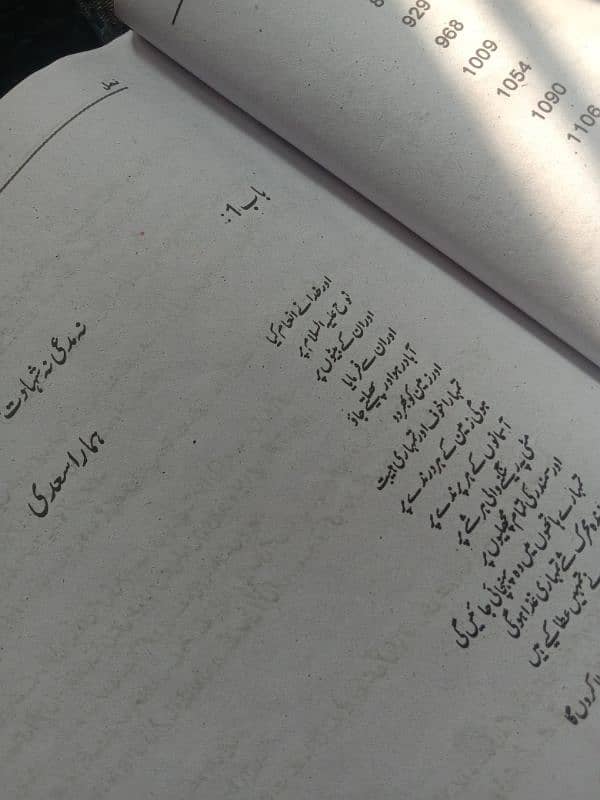 8
929
968
1009
1054
1090
1106
نمل
باب 1:
نہ مدعی نہ شہادت
ہمارا سعدی
اور خدا نے انعام کیا
نوح علیہ السلام پر
اور ان کے بیٹوں پر
اور ان سے فرمایا
آباد رہو اور پھیلتے جاؤ
اور زمین کو بھر دو
تمہارا خوف اور تمہاری ہیبت
ہوگی زمین کے ہر درندے پر
آسمانوں کے ہر پرندے پر
مٹی پہ رینگنے والی ہر شے پر
اور سمندر کی تمام مچھلیوں پر
تمہارے ہاتھوں میں وہ پہنچائی جائیں گی
متحرک شے تمہاری غذا ہوگی
تمہیں عطا کیے ہیں
کروں گا